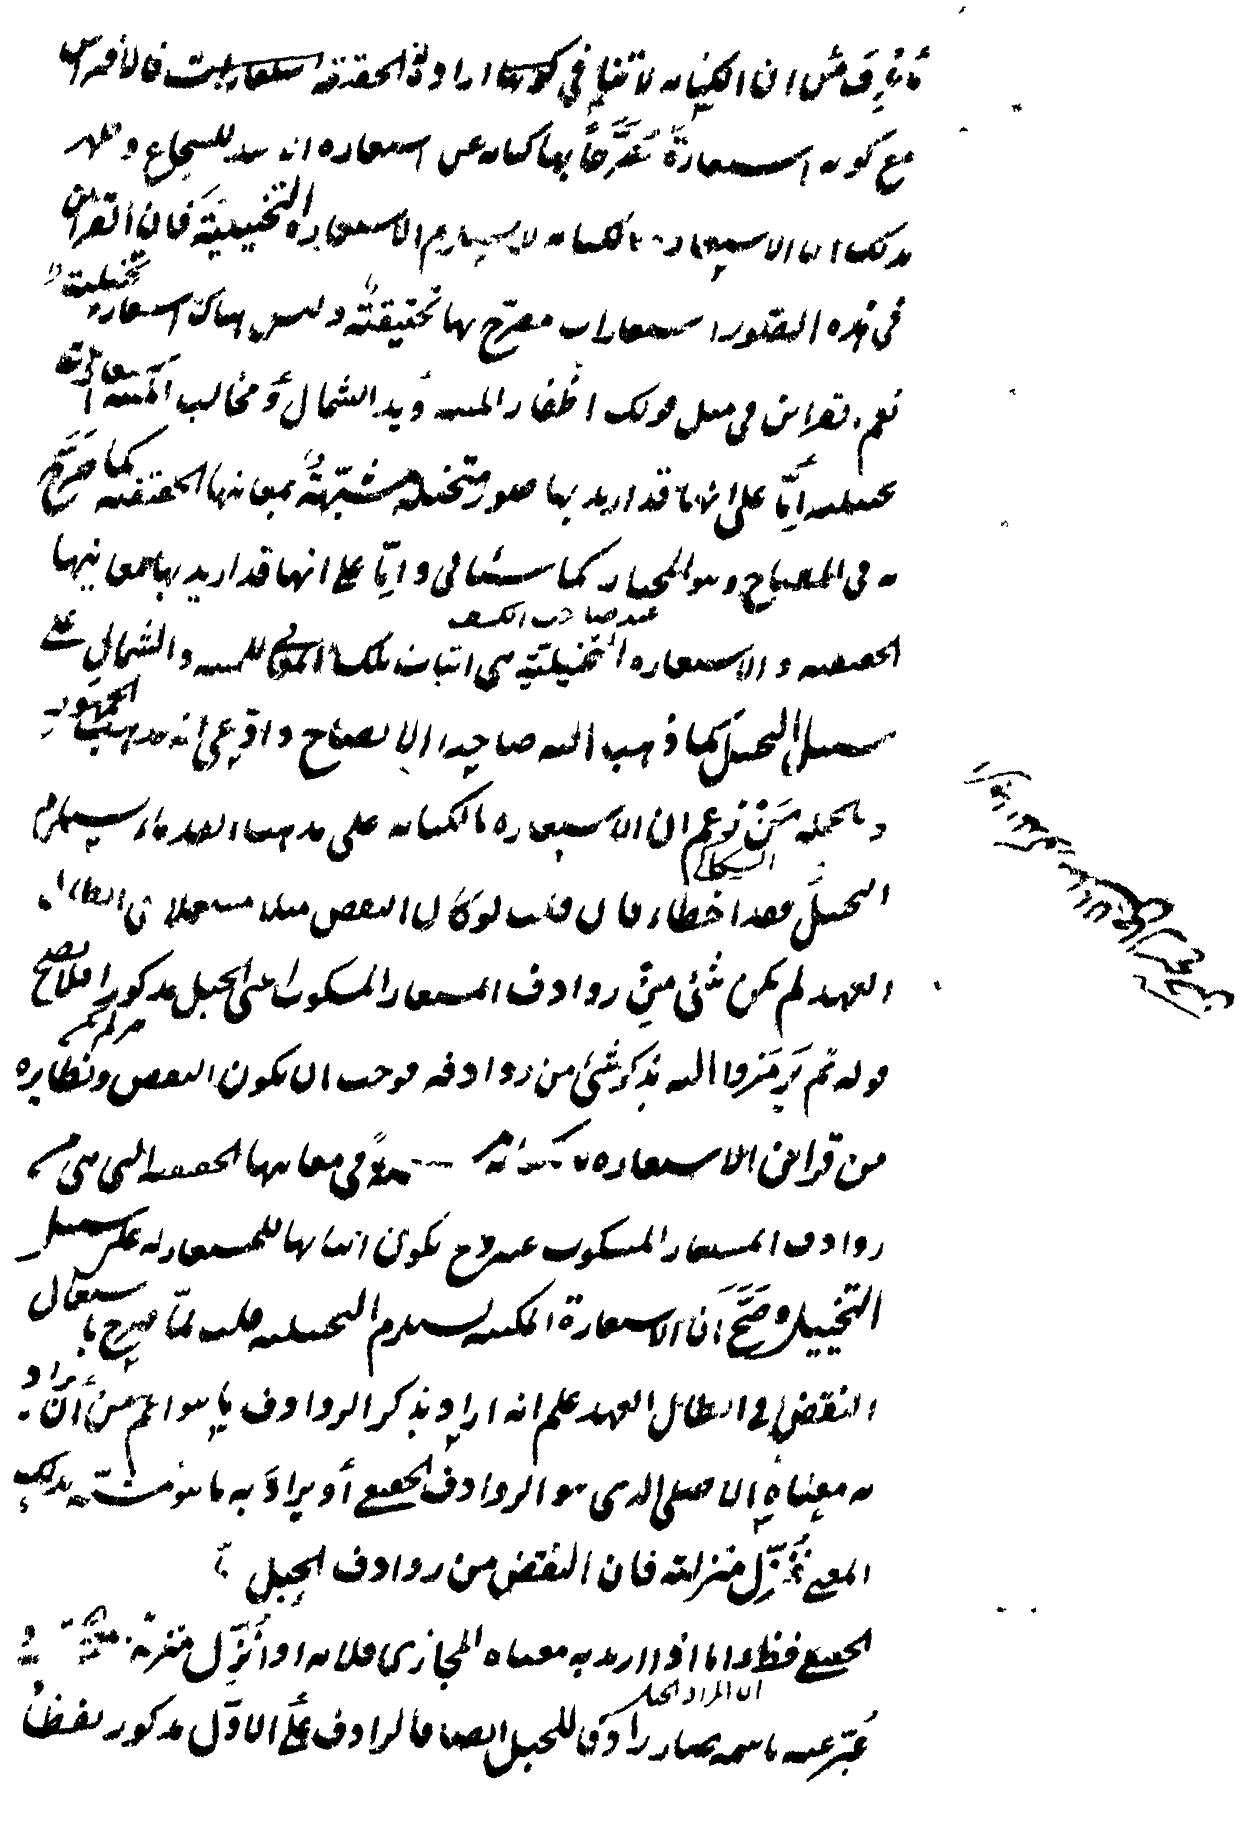 فأعرف من ان الكناية لا تنافي كونها ارادة الحقيقة استعارات فالافتراس
مع كونه استعارة مصرحا بها كناية عن استعارة اسد للشجاع وظهر
من ذلك ان الاستعارة بالكناية لا يستلزم الاستعارة التخييلية فان القرائن
في هذه الصور استعارات مصرح بها تحقيقية وليس هناك استعارة تخييلية
نعم قرائن في مثل قولك اظفار المنية ويد الشمال ومخالب المنية استعارات
تخييلية إمّا على انها قد اريد بها صور متخيلة مشبهة بمعانيها الحقيقية كما صرح
به في المفتاح وهو المختار كما سيأتي وإمّا على انها قد اريد بها معانيها
عند صاحب الكشف
الحقيقية والاستعارة التخييلية هي اثبات تلك المعاني للمنية والشمال على
سبيل التخييل كما ذهب اليه صاحب الايضاح وادعى انه مذهب الجمهور
وبالجملة من زعم ان الاستعارة بالكناية على مذهب القدماء يستلزم
السكاكي
التخييل فقد اخطاء فان قلت لو كان النقض مثلا مستعملا في ابطال
العهد لم يكن شئ من روادف المستعار المسكوت اعني الحبل مذكورا فلا يصح
قوله ثم يرمزوا اليه بذكر شئ من روادفه فوجب ان يكون النقض ونظايره
من قرائن الاستعارة بالكناية في معانيها الحقيقية التي هي
روادف المستعار المسكوت عنه وح يكون اثباتها للمستعار له على سبيل
التخييل وصح ان الاستعارة المكنية يستلزم التخييلية قلت لما صرح باستعمال
النقض في ابطال العهد علم انه اراد بذكر الروادف ما هو اعم من أن يراد
به معناه الاصلي الذي هو الروادف الحقيقي أو يراد به ما هو مشبه بذلك
المعنى نُزّل منزلته فان النقض من روادف الحبل
الحقيقي فظ واما اذا اريد به معناه المجازي فلانه اذا نُزّل منزلة
ان المراد الحبل
عبّر عنه باسمه صار رادفا للحبل ايضا فالرادف على الاول مذكور لفظا